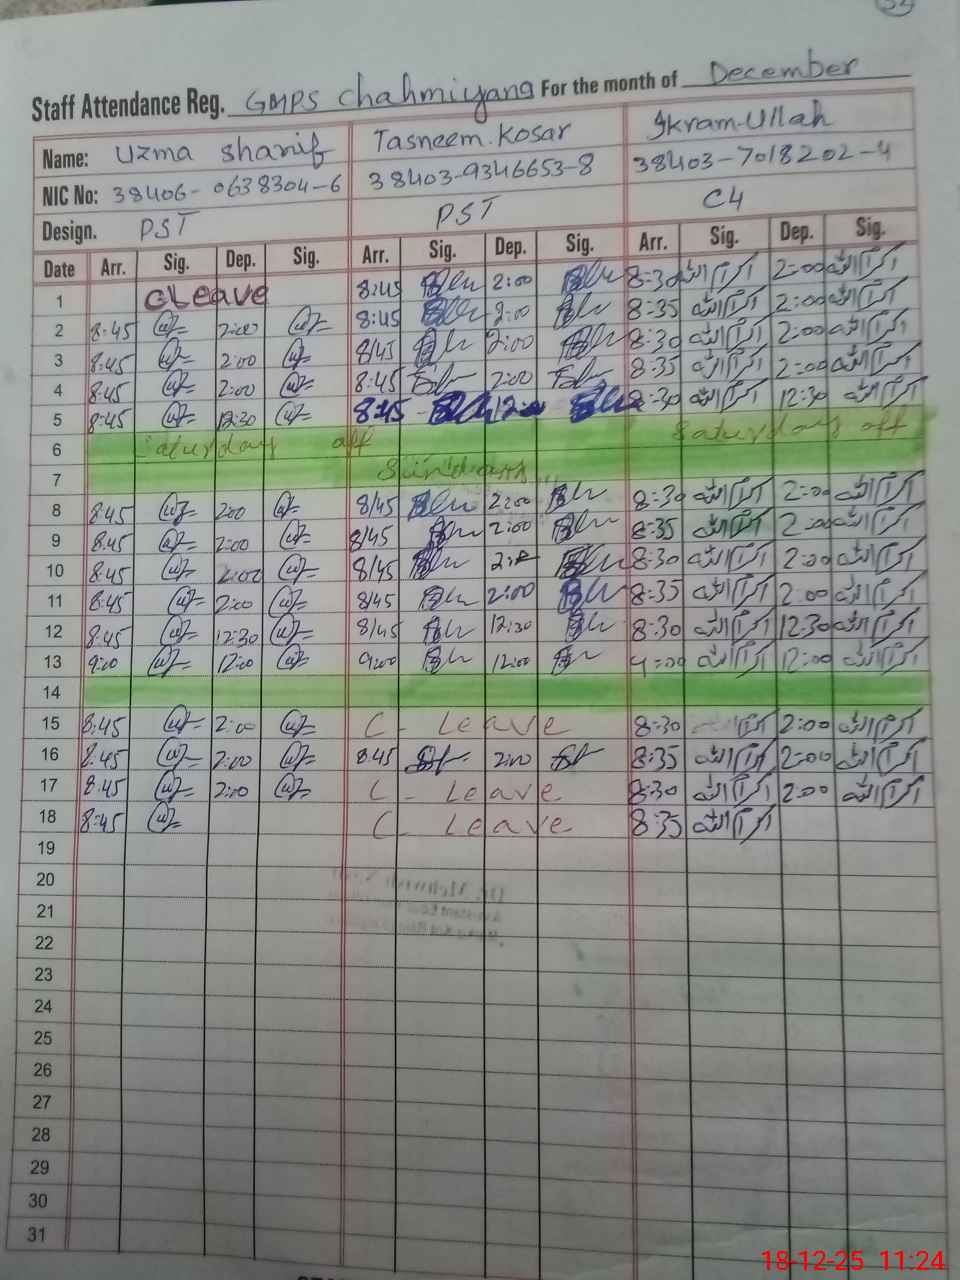 Staff Attendance Reg. GMPS Chahmiyang For the month of December
Name: Uzma Sharif Tasneem.Kosar Ikram-Ullah
NIC No: 38406-0638304-6 38403-9346653-8 38403-7018202-4
Design. PST PST C4
Date Arr. Sig. Dep. Sig. Arr. Sig. Dep. Sig. Arr. Sig. Dep. Sig.
1 C Leave 8:45 2:00 8:30 اکرام اللہ 2:00 اکرام اللہ
2 8:45 2:00 8:45 2:00 8:35 اکرام اللہ 2:00 اکرام اللہ
3 8:45 2:00 8/45 2:00 8:30 اکرام اللہ 2:00 اکرام اللہ
4 8:45 2:00 8:45 2:00 8:35 اکرام اللہ 2:00 اکرام اللہ
5 8:45 12:30 8:45 8:30 اکرام اللہ 12:30 اکرام اللہ
6 Saturday off Saturday off
7 Sunday
8 8:45 2:00 8/45 2:00 8:30 اکرام اللہ 2:00 اکرام اللہ
9 8:45 2:00 8/45 2:00 8:35 اکرام اللہ 2:00 اکرام اللہ
10 8:45 2:00 8/45 8:30 اکرام اللہ 2:00 اکرام اللہ
11 8:45 2:00 8/45 2:00 8:35 اکرام اللہ 2:00 اکرام اللہ
12 8:45 12:30 8/45 12:30 8:30 اکرام اللہ 12:30 اکرام اللہ
13 9:00 12:00 9:00 12:00 9:00 اکرام اللہ 12:00 اکرام اللہ
14
15 8:45 2:00 C - Leave 8:30 اکرام اللہ 2:00 اکرام اللہ
16 8:45 2:00 8:45 2:00 8:35 اکرام اللہ 2:00 اکرام اللہ
17 8:45 2:00 C - Leave 8:30 اکرام اللہ 2:00 اکرام اللہ
18 8:45 C - Leave 8:35 اکرام اللہ
19
20
21
22
23
24
25
26
27
28
29
30
31
18-12-25 11:24